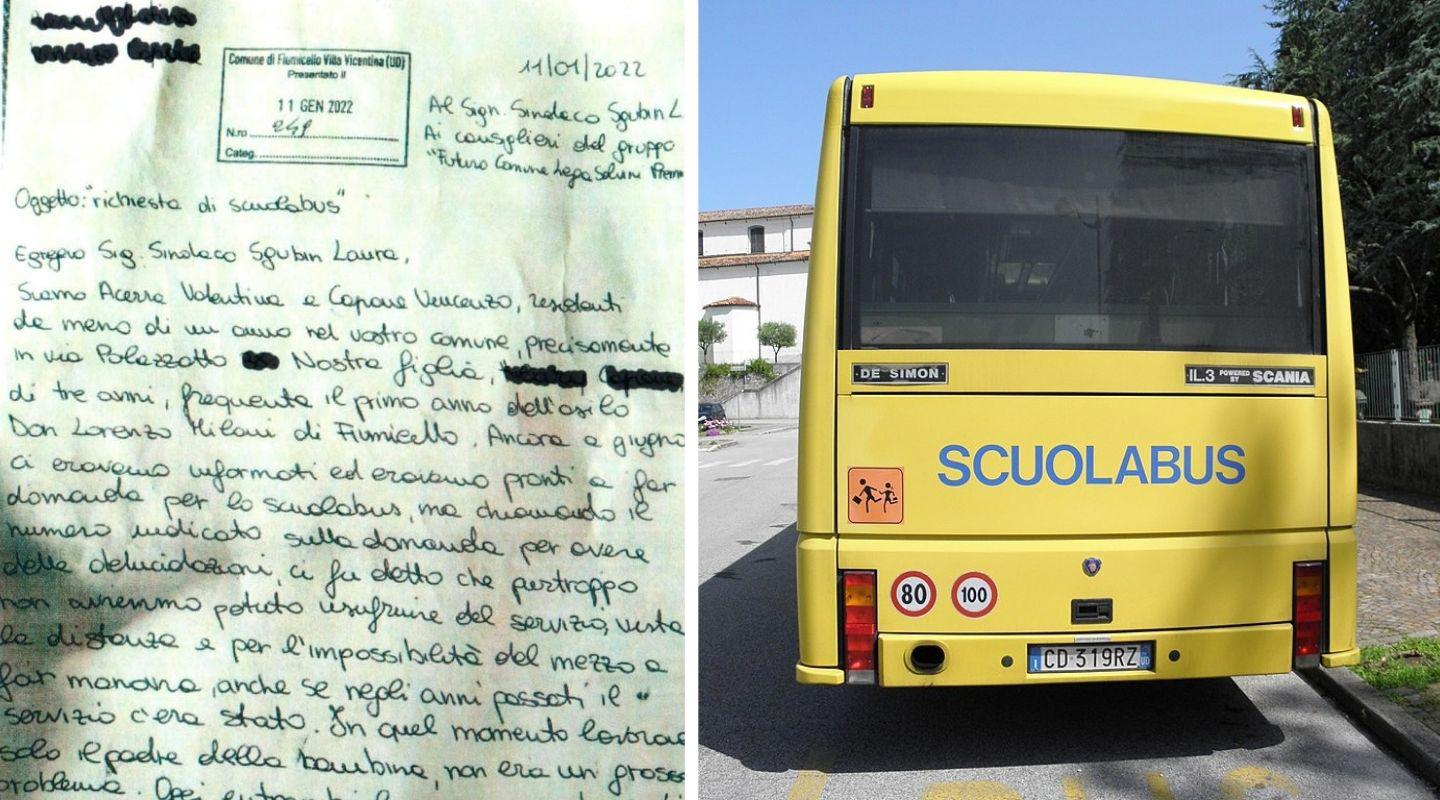 Comune di Fiumicello Villa Vicentina (UD)
Presentato il
11 GEN 2022
N.ro
Categ.
11/01/2022
Al Sign. Sindaco Sgubin L
Ai consiglieri del gruppo
"Futuro Comune Lega Salvini
Oggetto: "richiesta di scuolabus"
Egregio Sig. Sindaco Sgubin Laura,
Siamo Acerra Valentina e Capone Vincenzo, residenti
da meno di un anno nel vostro comune, precisamente
in via Palazzatto Nostra figlia,
di tre anni, frequenta il primo anno dell'asilo
Don Lorenzo Milani di Fiumicello. Ancora a giugno
ci eravamo informati ed eravamo pronti a far
domanda per lo scuolabus, ma chiamando il
numero indicato sulla domanda per avere
delle delucidazioni, ci fu detto che purtroppo
non avremmo potuto usufruire del servizio, vista
la distanza e per l'impossibilità del mezzo a
far manovra, anche se negli anni passati il
servizio c'era stato. In quel momento lavorava
solo il padre della bambina, non era un grosso
problema. Oggi
DE SIMON
IL.3 POWERED BY SCANIA
SCUOLABUS
80
100
I CD 319RZ UD